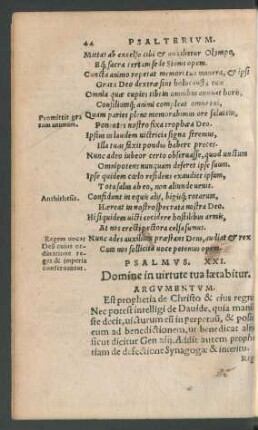 44 PSALTERIVM.
Mittat ab excelso tibi & auxilietur Olympo,
Eq; sacra certam ferat Sione opem.
Cuncta animo repetat memori tua munera, & ipsi
Grata Deo dextra sint holocausta tua
Omnia quæ cupies tibi in omnibus annuat horis,
Consiliumq; animi compleat omne tui,
Promittit gra
tiarum actionem.
Quam pariet pleno memorabimus ore salutem,
Ponet & nostro fixa trophæa Deo.
Ipsum in laudem uictricia signa feremus,
Illa tuæ fixit pondus habere preces.
Nunc adeo iubeor certo obseruasse, quod unctum
Omnipotens nunquam deseret ipse suum.
Ipse quidem cœlo residens exaudiet ipsum,
Tota salus ab eo, non aliunde uenit.
Antithesis.
Confidunt in equis alij, bigisq; rotarum,
Hæreat in nostro spes rata nostra Deo.
Hi siquidem uicti cecidere hostilibus armis,
At nos erecti pectora celsa sumus.
Regem uocat
Dei cuius or-
dinatione re-
ges & imperia
conseruantur.
Nunc ades auxilium præstans Deus, audiat & rex
Cum nos sollicita uoce petemus opem.
PSALMVS. XXI.
Domine in uirtute tua lætabitur.
ARGVMENTVM.
Est prophetia de Christo & eius regno
Nec potest intelligi de Dauide, quia mani
ste docit, uicturum esse in perpetuū, & posi
eum ad benedictionem, ut benedicat alii
sicut dicitur Gen. xij. Addit autem prophe
tiam de defectione Synagogæ & interitu.
Reg